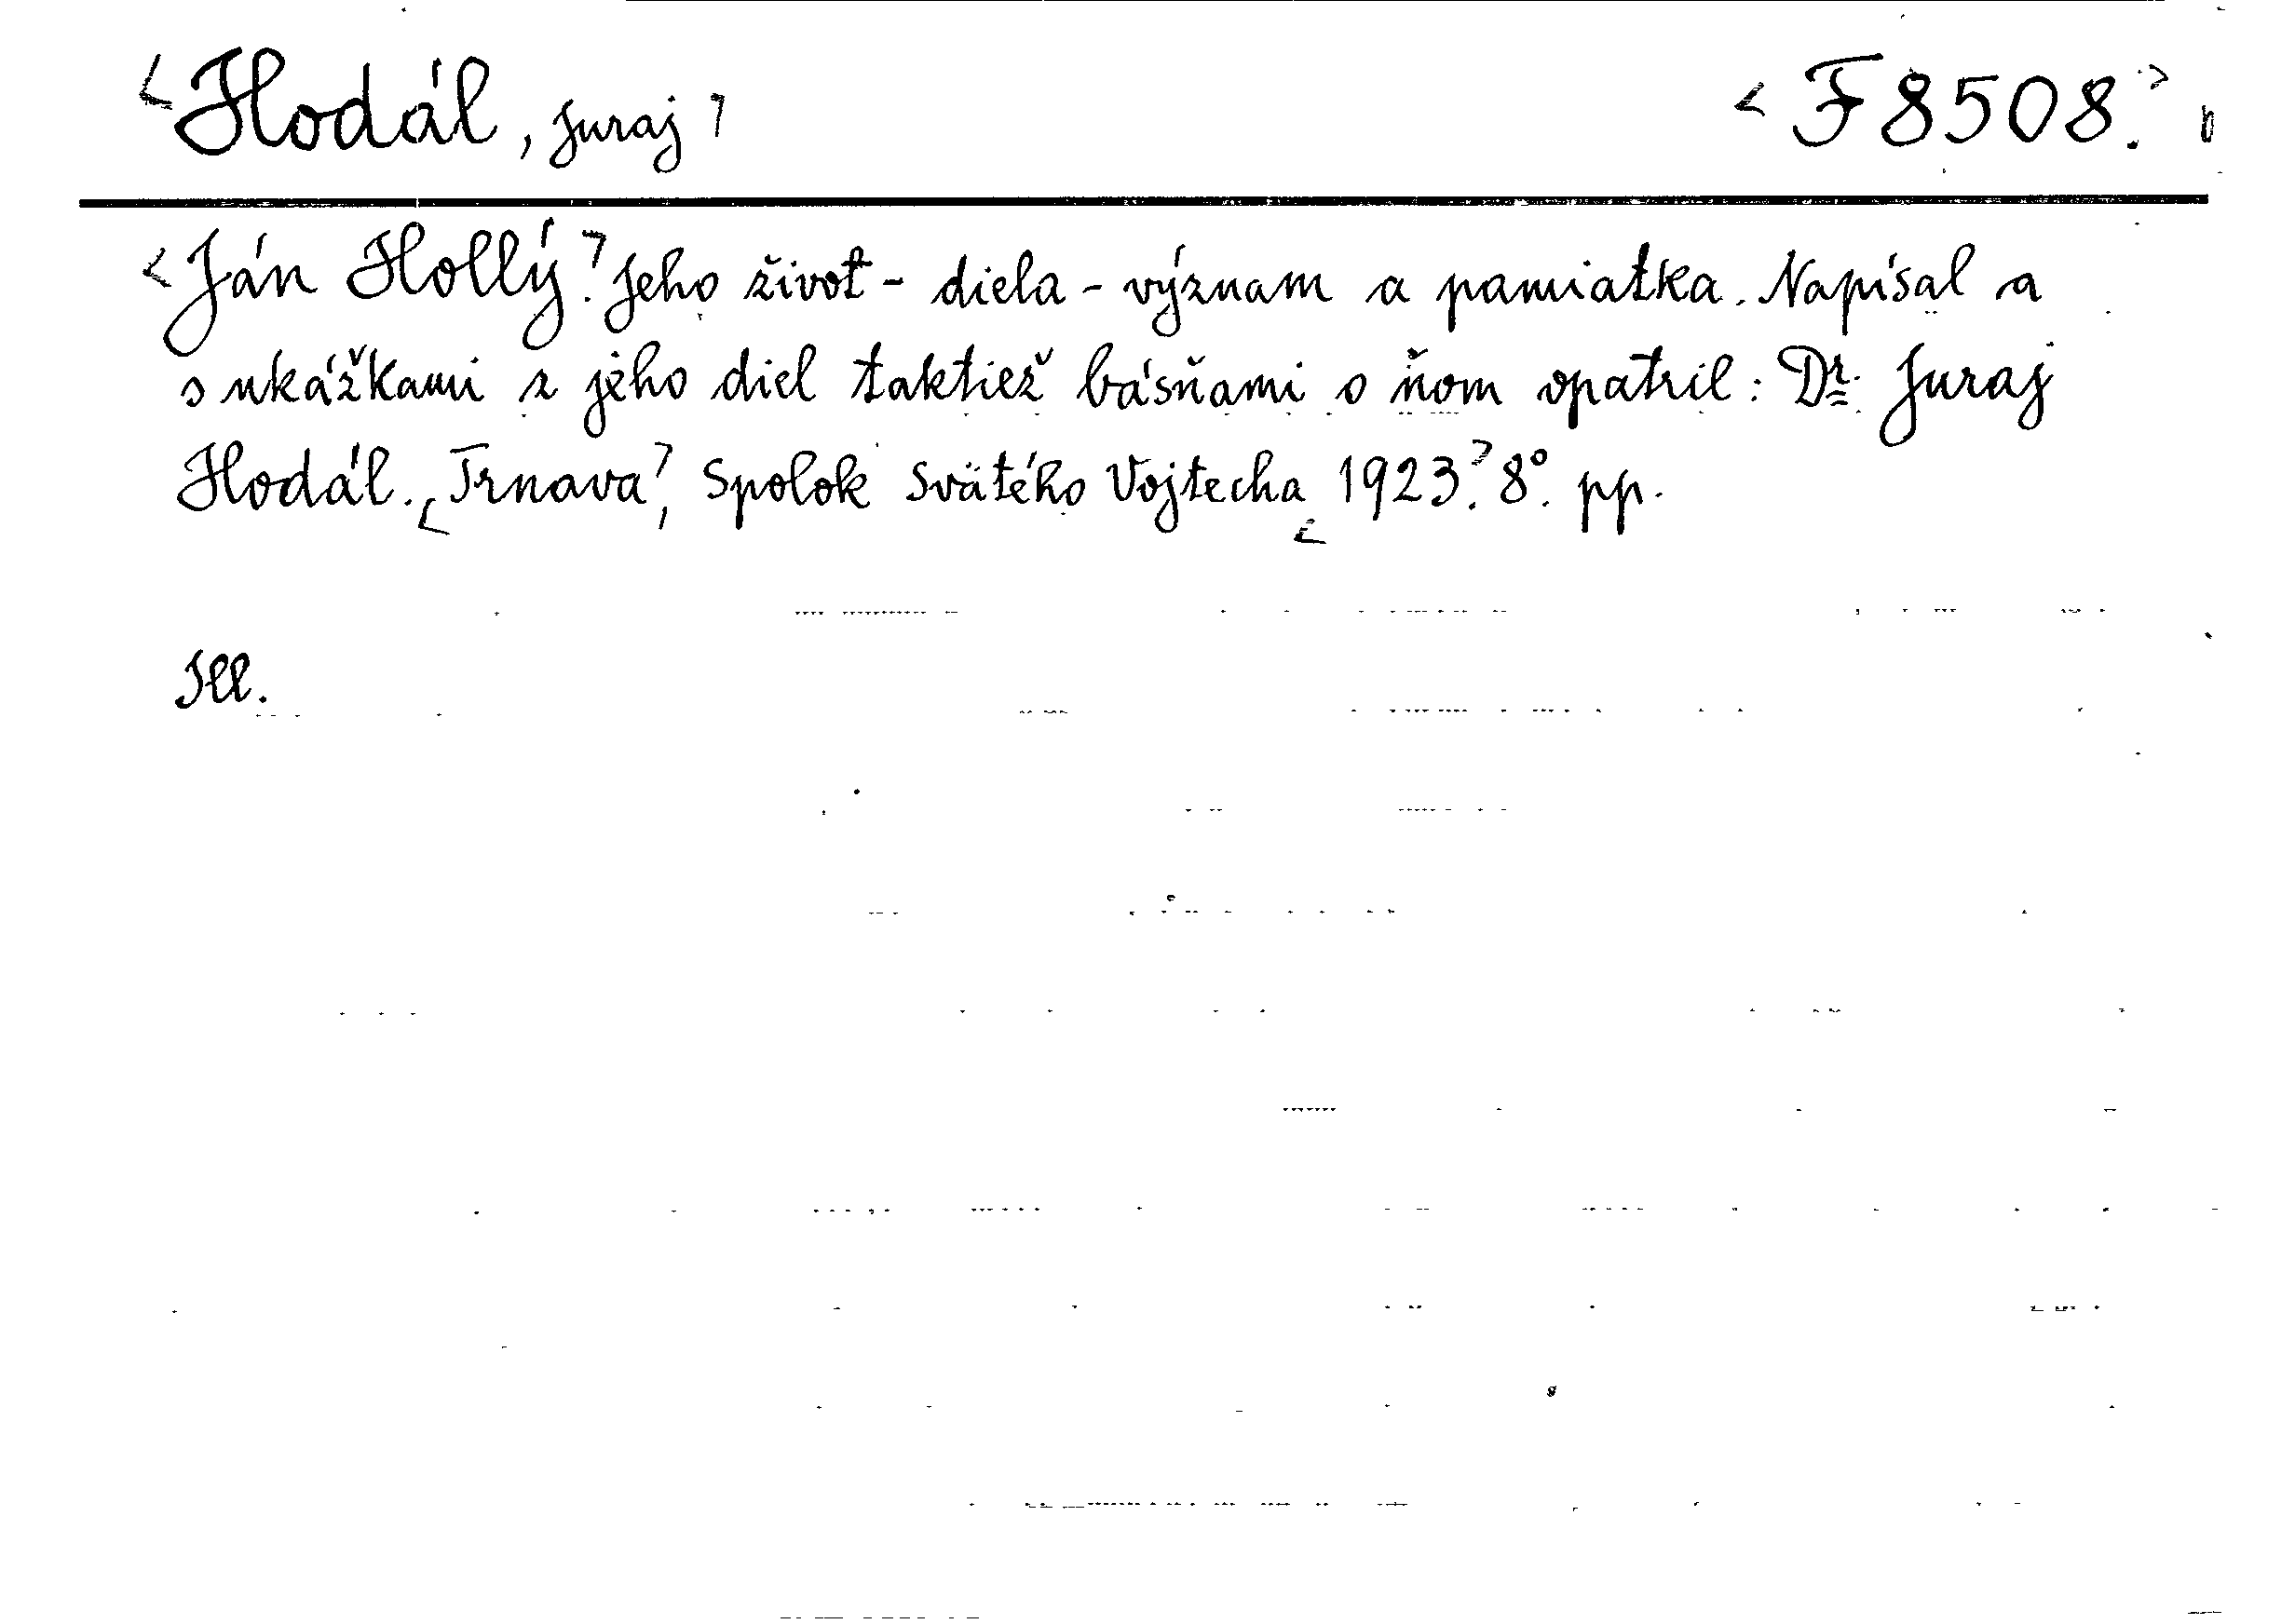 <Hodál, Juraj> <F 8508.>
<Ján Hollý.> Jeho život - diela - význam a pamiatka. Napísal a
s ukážkami z jeho diel taktiež básňami o ňom opatril: Dr. Juraj
Hodál. <Trnava>, Spolok Svätého Vojtecha <1923.> 8°. pp.
Ill.